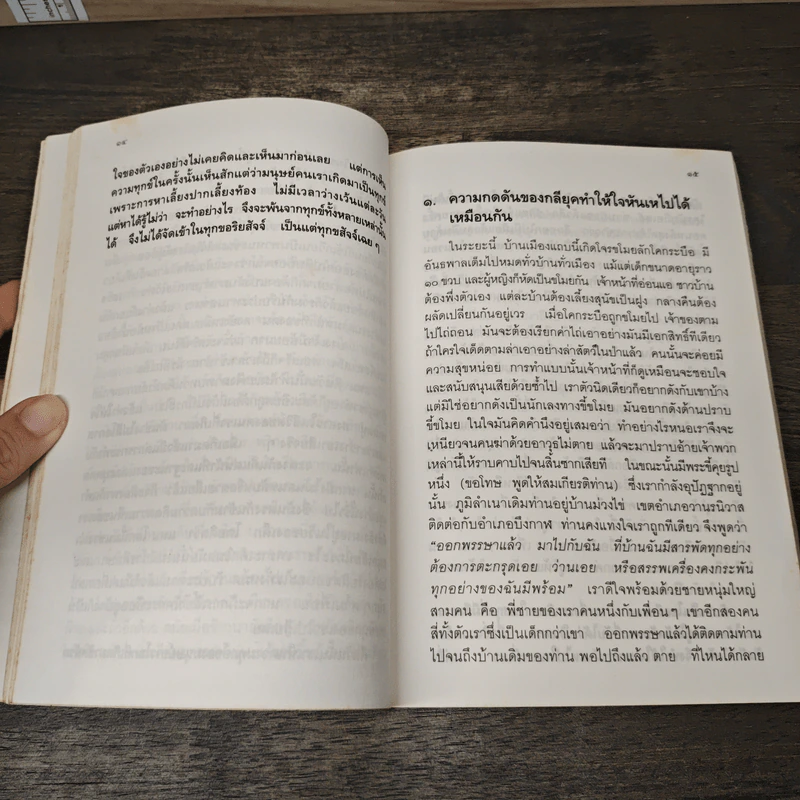 ๑๔
ใจของตัวเองอย่างไม่เคยคิดและเห็นมาก่อนเลย แต่การเห็น
ความทุกข์ในครั้งนั้นเห็นสักแต่ว่ามนุษย์คนเราเกิดมาเป็นทุกข์
เพราะการหาเลี้ยงปากเลี้ยงท้อง ไม่มีเวลาว่างเว้นแต่ละวัน
แต่หาได้รู้ไม่ว่า จะทำอย่างไร จึงจะพ้นจากทุกข์ทั้งหลายเหล่านั้น
ได้ จึงไม่ได้จัดเข้าในทุกขอริยสัจจ์ เป็นแต่ทุกขสัจจ์เฉย ๆ
๑๕
๑. ความกดดันของกลียุคทำให้ใจหันเหไปได้
เหมือนกัน
ในระยะนี้ บ้านเมืองแถบนี้เกิดโจรขโมยลักโคกระบือ มี
อันธพาลเต็มไปหมดทั่วบ้านทั่วเมือง แม้แต่เด็กขนาดอายุราว
๑๐ ขวบ และผู้หญิงก็หัดเป็นขโมยกัน เจ้าหน้าที่ก็อ่อนแอ ชาวบ้าน
ต้องพึ่งตัวเอง แต่ละบ้านต้องเลี้ยงสุนัขเป็นฝูง กลางคืนต้อง
ผลัดเปลี่ยนกันอยู่เวร เมื่อโคกระบือถูกขโมยไป เจ้าของตาม
ไปไถ่ถอน มันจะต้องเรียกค่าไถ่เอาอย่างมันมีเอกสิทธิ์ทีเดียว
ถ้าใครใจเด็ดตามล่าเอาอย่างล่าสัตว์ในป่าแล้ว คนนั้นจะค่อยมี
ความสุขหน่อย การทำแบบนั้นเจ้าหน้าที่ก็ดูเหมือนจะชอบใจ
และสนับสนุนเสียด้วยซ้ำไป เราตัวนิดเดียวก็อยากดังกับเขาบ้าง
แต่มิใช่อยากดังเป็นนักเลงทางขี้ขโมย มันอยากดังด้านปราบ
ขี้ขโมย ในใจมันคิดคำนึงอยู่เสมอว่า ทำอย่างไรหนอเราจึงจะ
เหนียวจนคนฆ่าด้วยอาวุธไม่ตาย แล้วจะมาปราบอ้ายเจ้าพวก
เหล่านี้ให้ราบคาบไปจนสิ้นซากเสียที ในขณะนั้นมีพระขี้คุยรูป
หนึ่ง (ขอโทษ พูดให้สมเกียรติท่าน) ซึ่งเรากำลังอุปัฏฐากอยู่
นั้น ภูมิลำเนาเดิมท่านอยู่บ้านม่วงไข่ เขตอำเภอวานรนิวาส
ติดต่อกับอำเภอบึงกาฬ ท่านคงแทงใจเราถูกทีเดียว จึงพูดว่า
“ออกพรรษาแล้ว มาไปกับฉัน ที่บ้านฉันมีสารพัดทุกอย่าง
ต้องการตะกรุดเอย ว่านเอย หรือสรรพเครื่องคงกระพัน
ทุกอย่างของฉันมีพร้อม” เราดีใจพร้อมด้วยชายหนุ่มใหญ่
สามคน คือ พี่ชายของเราคนหนึ่งกับเพื่อนๆ เขาอีกสองคน
สี่ทั้งตัวเราซึ่งเป็นเด็กกว่าเขา ออกพรรษาแล้วได้ติดตามท่าน
ไปจนถึงบ้านเดิมของท่าน พอไปถึงแล้ว ตาย ที่ไหนได้กลาย